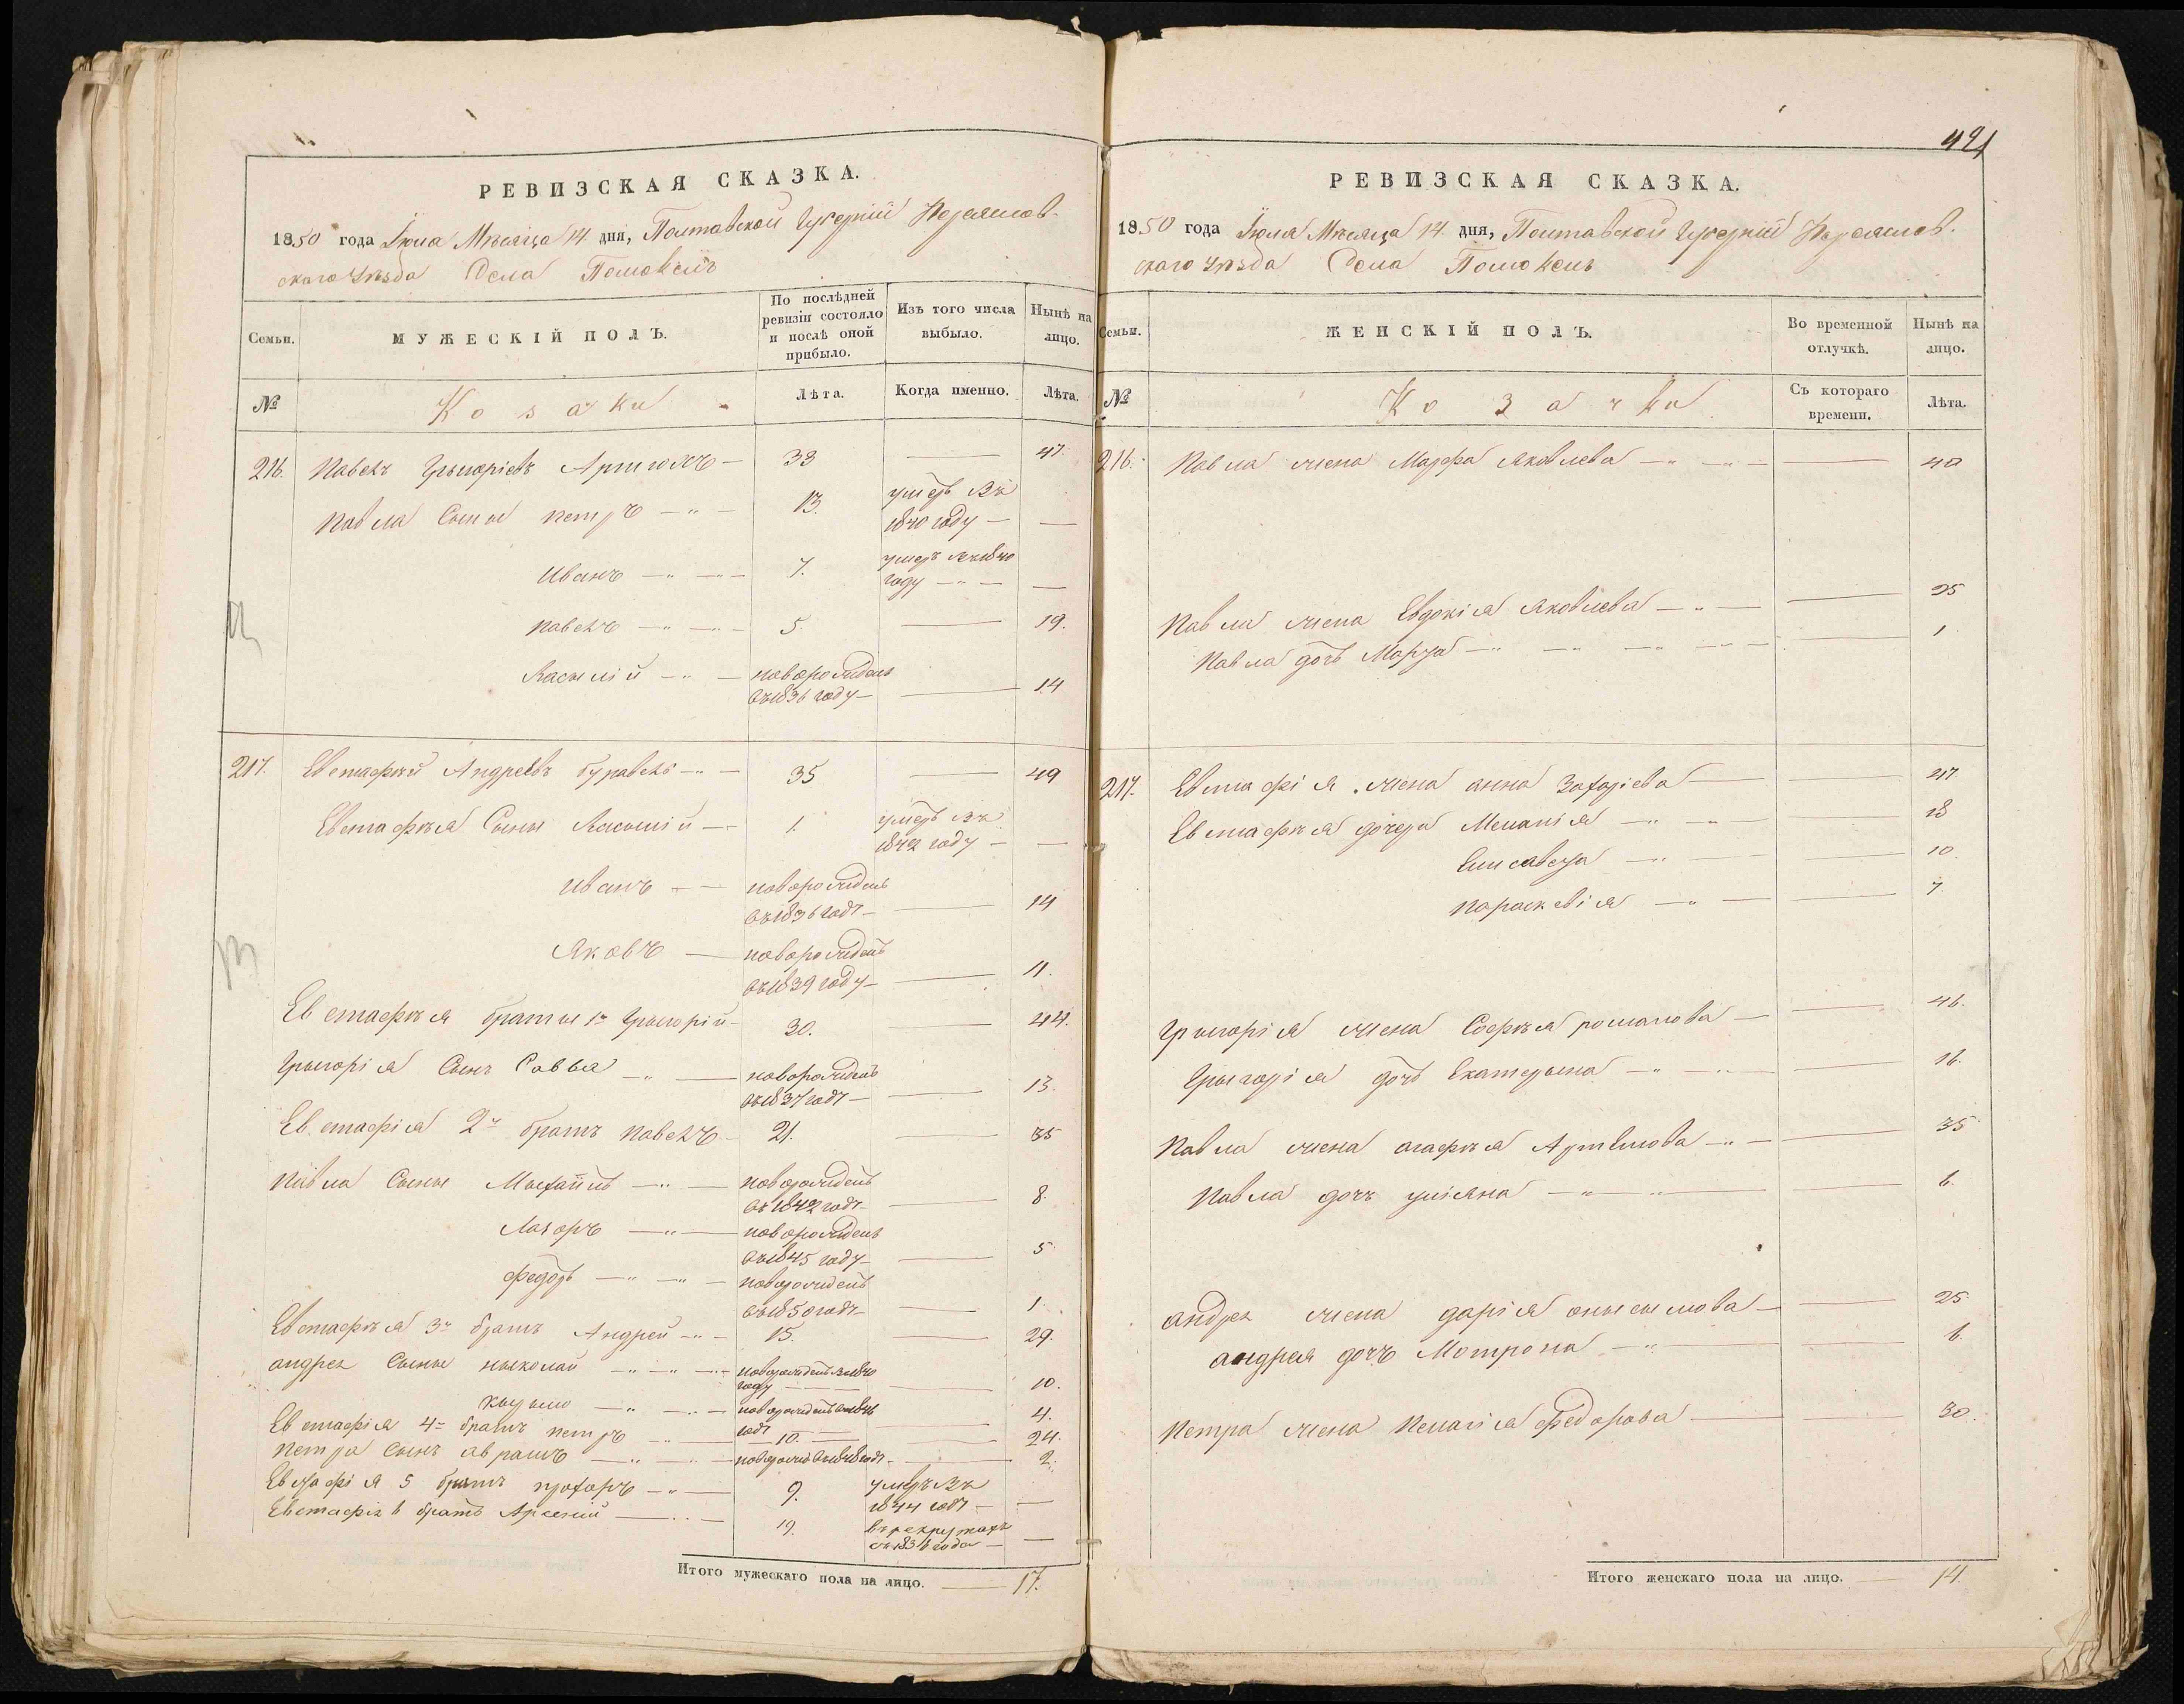 421
РЕВИЗСКАЯ СКАЗКА.
1850 года Іюля Мѣсяца 14 дня, Полтавской Губерніи Переяслов-
скаго Уѣзда Села Помоклъ
Семьи.
МУЖЕСКІЙ ПОЛЪ.
По послѣдней ревизіи состояло и послѣ оной прибыло.
Изъ того числа выбыло.
Нынѣ на лицо.
№
Козаки
Лѣта.
Когда именно.
Лѣта.
216. Павелъ Грыгоріевъ 33 — 47.
Павла Сыны петръ 13. умеръ въ
1840 году —
Иванъ 7. умеръ въ 1840
году —
павелъ 5. — 19.
Василій новорожденъ
въ 1836 году — 14
217. Евстафій Андреевъ 35 — 49
Евстафія Сыны Василій 1. умеръ въ
1842 году —
иванъ новорожденъ
въ 1836 годѣ — 14
Яковъ новорожденъ
въ 1839 году — 11.
Евстафія братья 1й Грыгорій 30. — 44.
Грыгорія Сынъ Савва новорожденъ
въ 1837 годѣ — 13.
Евстафія 2й братъ павелъ 21. — 35
павла Сыны Мыхаилъ новорожденъ
въ 1842 годѣ — 8.
Лазоръ новорожденъ
въ 1845 году — 5
федоръ новорожденъ
въ 1850 годѣ — 1.
Евстафія 3й братъ Андрей 15. — 29.
андрея Сыны ныколай новорожденъ въ 1840
году — 10.
новорожденъ въ 1846
годѣ — 4.
Евстафія 4й братъ петръ 10. — 24.
петра Сынъ аврамъ новорожд въ 1848 годѣ — 2.
Евстафія 5 братъ прохоръ 9. умеръ въ
1844 годѣ —
Евстафія 6 братъ Арсеній 19. въ рекрутахъ
съ 1836 года —
Итого мужескаго пола на лицо. — 17.
РЕВИЗСКАЯ СКАЗКА.
1850 года Іюля Мѣсяца 14 дня, Полтавской Губерніи Переяслов-
скаго Уѣзда Села Помоклъ
Семьи.
ЖЕНСКІЙ ПОЛЪ.
Во временной отлучкѣ.
Нынѣ на лицо.
№
Козачки
Съ котораго времени.
Лѣта.
216. Павла жена Марфа Яковлева — 40
Павла жена Евдокія Яковлева — 25
Павла дочь Марфа — 1
217. Евстафія жена анна Захаріева — 47
Евстафія дочери Меланія — 18
Елисавета — 10.
параскевія — 7.
Грыгорія жена Софія романова — 46.
Грыгорія дочь Екатерына — 16.
Павла жена агафія Артемова — 35
Павла дочь уліяна — 6.
андрея жена дарія онысымова — 25
андрея дочь Мотрона — 6.
петра жена пелагія федорова — 30.
Итого женскаго пола на лицо. — 14.